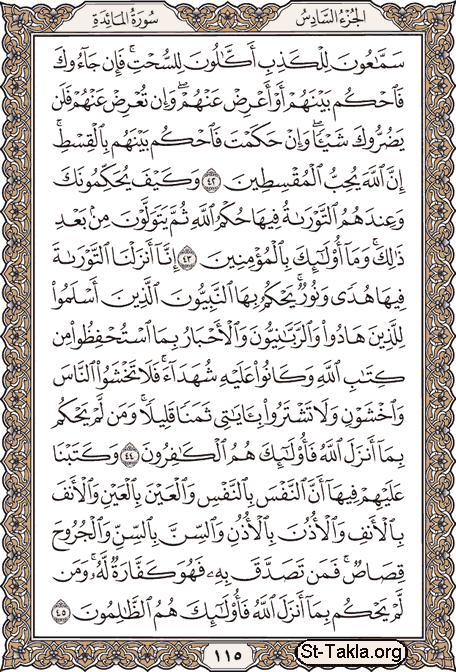 الجزء السادس
سورة المائدة
سَمَّٰعُونَ لِلْكَذِبِ أَكَّٰلُونَ لِلسُّحْتِ ۚ فَإِن جَآءُوكَ
فَٱحْكُم بَيْنَهُمْ أَوْ أَعْرِضْ عَنْهُمْ ۖ وَإِن تُعْرِضْ عَنْهُمْ فَلَن
يَضُرُّوكَ شَيْـًٔا ۖ وَإِنْ حَكَمْتَ فَٱحْكُم بَيْنَهُم بِٱلْقِسْطِ ۚ
إِنَّ ٱللَّهَ يُحِبُّ ٱلْمُقْسِطِينَ ٤٢ وَكَيْفَ يُحَكِّمُونَكَ
وَعِندَهُمُ ٱلتَّوْرَىٰةُ فِيهَا حُكْمُ ٱللَّهِ ثُمَّ يَتَوَلَّوْنَ مِنۢ بَعْدِ
ذَٰلِكَ ۚ وَمَآ أُو۟لَٰٓئِكَ بِٱلْمُؤْمِنِينَ ٤٣ إِنَّآ أَنزَلْنَا ٱلتَّوْرَىٰةَ
فِيهَا هُدًى وَنُورٌ ۚ يَحْكُمُ بِهَا ٱلنَّبِيُّونَ ٱلَّذِينَ أَسْلَمُوا۟
لِلَّذِينَ هَادُوا۟ وَٱلرَّبَّٰنِيُّونَ وَٱلْأَحْبَارُ بِمَا ٱسْتُحْفِظُوا۟ مِن
كِتَٰبِ ٱللَّهِ وَكَانُوا۟ عَلَيْهِ شُهَدَآءَ ۚ فَلَا تَخْشَوُا۟ ٱلنَّاسَ
وَٱخْشَوْنِ وَلَا تَشْتَرُوا۟ بِـَٔايَٰتِى ثَمَنًا قَلِيلًا ۚ وَمَن لَّمْ يَحْكُم
بِمَآ أَنزَلَ ٱللَّهُ فَأُو۟لَٰٓئِكَ هُمُ ٱلْكَٰفِرُونَ ٤٤ وَكَتَبْنَا
عَلَيْهِمْ فِيهَآ أَنَّ ٱلنَّفْسَ بِٱلنَّفْسِ وَٱلْعَيْنَ بِٱلْعَيْنِ وَٱلْأَنفَ
بِٱلْأَنفِ وَٱلْأُذُنَ بِٱلْأُذُنِ وَٱلسِّنَّ بِٱلسِّنِّ وَٱلْجُرُوحَ
قِصَاصٌ ۚ فَمَن تَصَدَّقَ بِهِۦ فَهُوَ كَفَّارَةٌ لَّهُۥ ۚ وَمَن
لَّمْ يَحْكُم بِمَآ أَنزَلَ ٱللَّهُ فَأُو۟لَٰٓئِكَ هُمُ ٱلظَّٰلِمُونَ ٤٥
١١٥
St-Takla.org